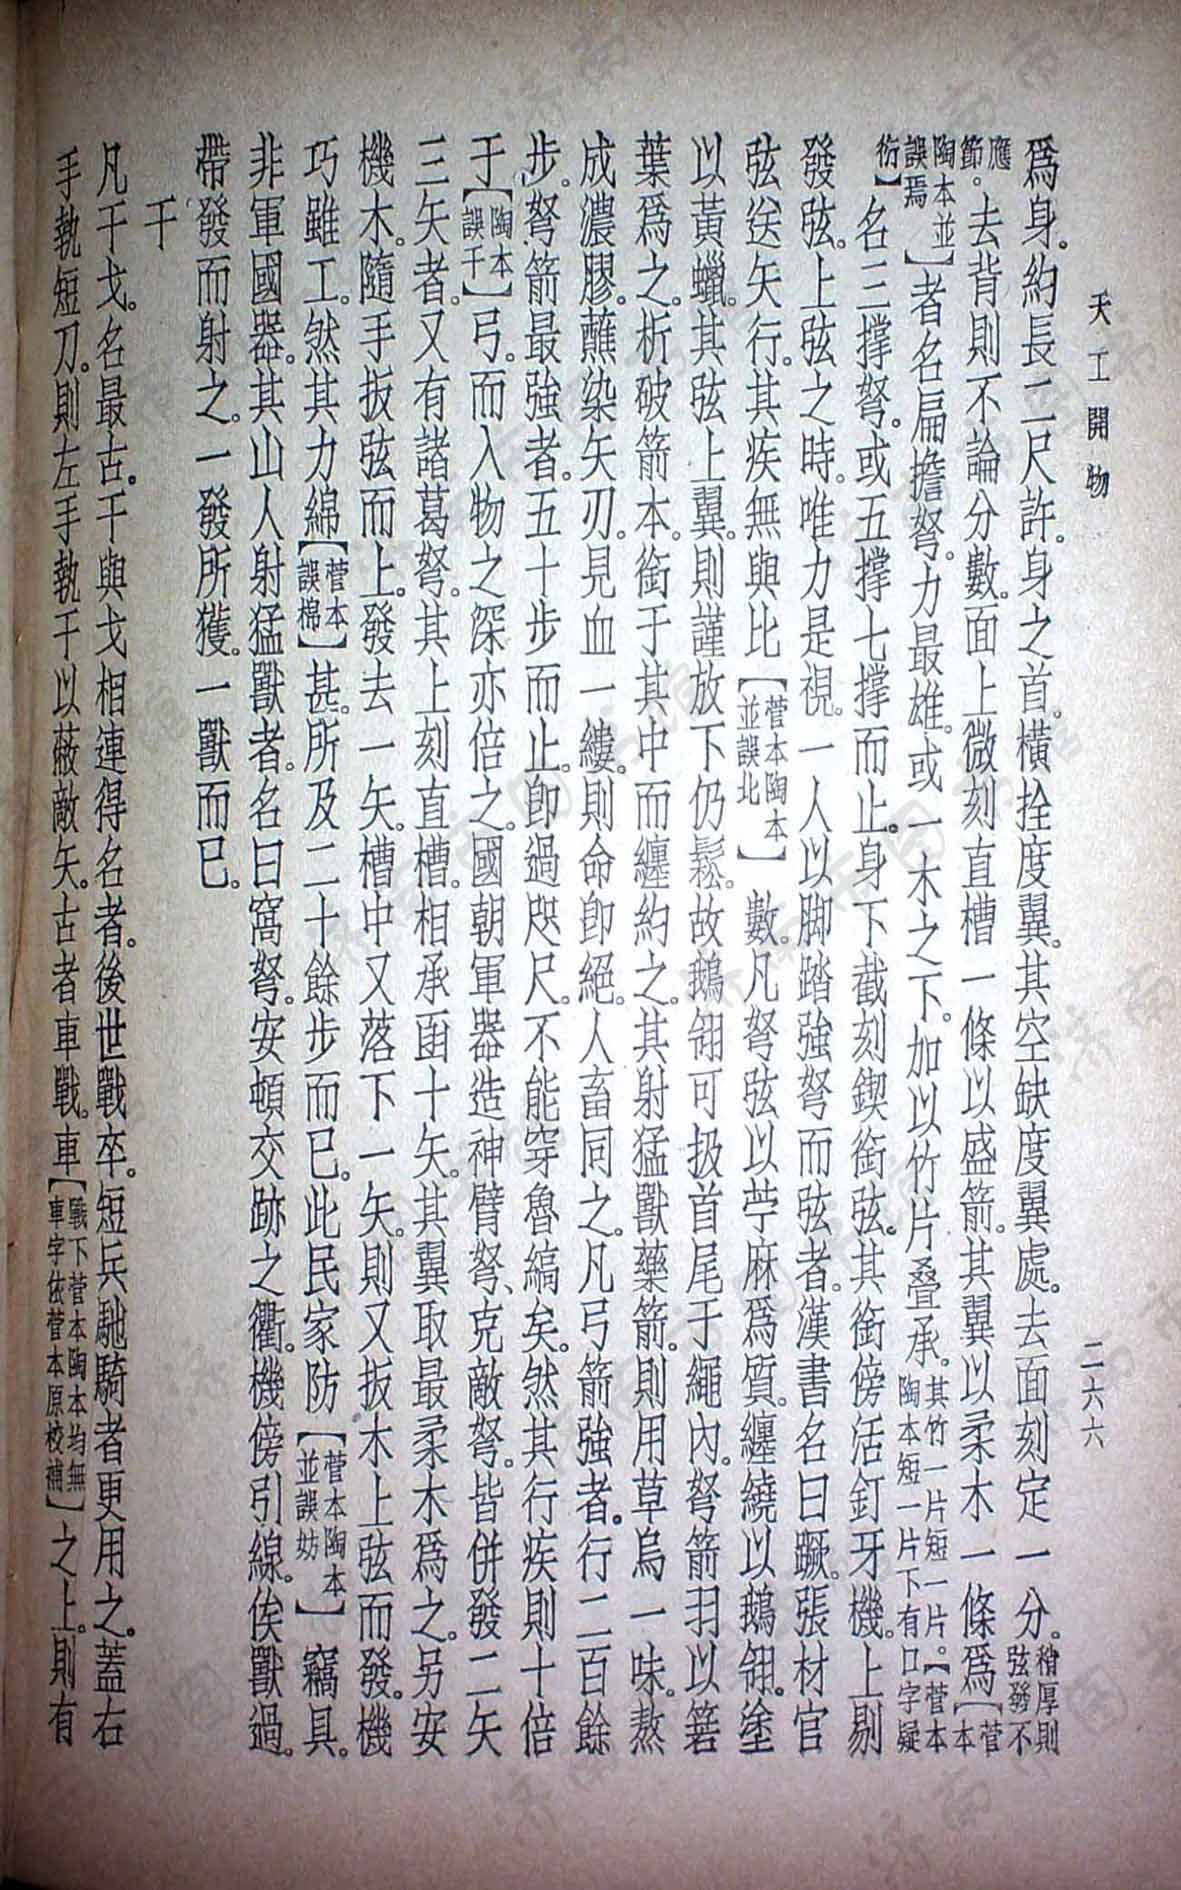 天工開物
二六六
爲身。約長二尺許。身之首。橫拴度翼。其空缺度翼處。去面刻定一分。稍厚則弦發不
應節。去背則不論分數。面上微刻直槽一條以盛箭。其翼以柔木一條爲【菅本
陶本並誤焉】者名扁擔弩。力最雄。或一木之下。加以竹片叠承。其竹一片短一片。【菅本陶本短一片下有口字疑
衍】名三撑弩。或五撑七撑而止。身下截刻鍥銜弦。其銜傍活釘牙機。上剔
發弦。上弦之時。唯力是視。一人以脚踏強弩而弦者。漢書名曰蹶張材官
弦送矢行。其疾無與比【菅本陶本並誤北】數。凡弩弦以苧麻爲質。纏繞以鵝翎。塗
以黃蠟。其弦上翼。則謹放下仍鬆。故鵝翎可扱首尾于繩內。弩箭羽以箬
葉爲之。析破箭本。銜于其中而纏約之。其射猛獸藥箭。則用草烏一味。熬
成濃膠。蘸染矢刃。見血一縷。則命卽絕。人畜同之。凡弓箭強者。行二百餘
步。弩箭最強者。五十步而止。卽過咫尺。不能穿魯縞矣。然其行疾則十倍
于【陶本誤干】弓。而入物之深亦倍之。國朝軍器造神臂弩、克敵弩。皆併發二矢
三矢者。又有諸葛弩。其上刻直槽。相承函十矢。其翼取最柔木爲之。另安
機木。隨手扳弦而上。發去一矢。槽中又落下一矢。則又扳木上弦而發。機
巧雖工。然其力綿【菅本誤棉】甚。所及二十餘步而已。此民家防【菅本陶本並誤妨】竊具。
非軍國器。其山人射猛獸者。名曰窩弩。安頓交跡之衢。機傍引線。俟獸過。
帶發而射之。一發所獲。一獸而已。
干
凡干戈。名最古。干與戈相連得名者。後世戰卒。短兵馳騎者更用之。蓋右
手執短刀。則左手執干以蔽敵矢。古者車戰。車【戰下菅本陶本均無車字依菅本原校補】之上。則有